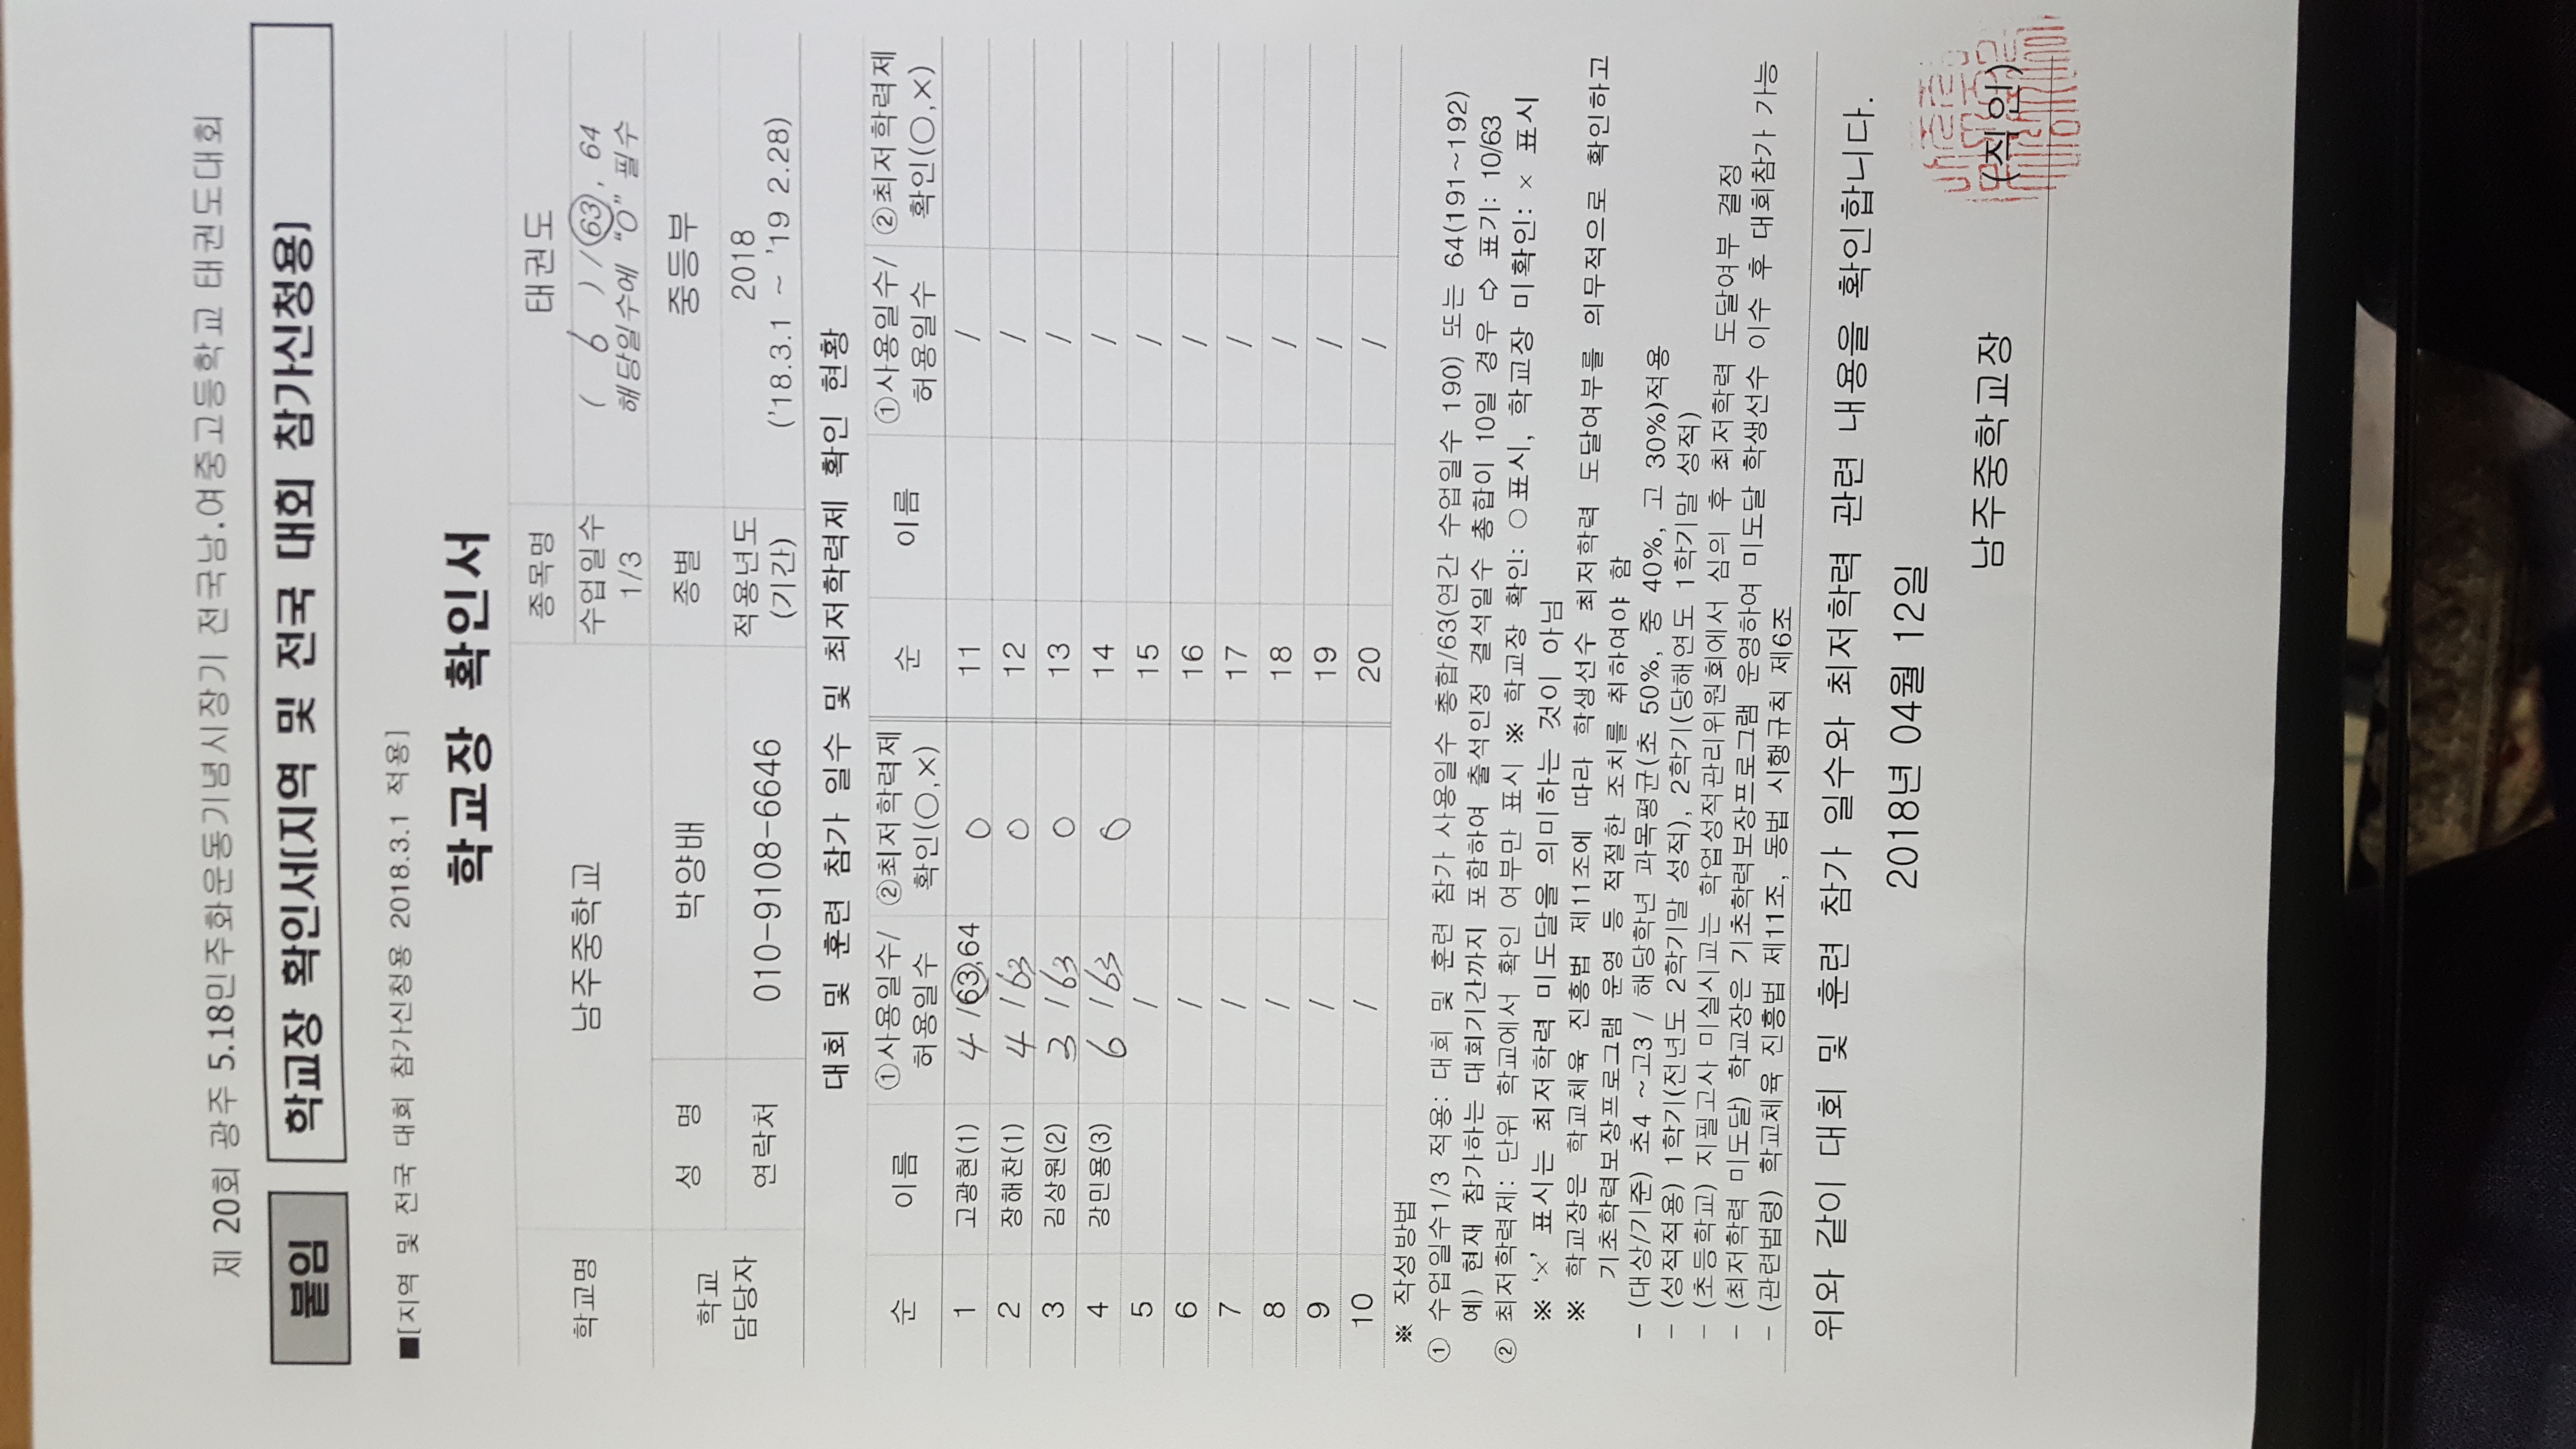 제 20회 광주 5.18민주화운동기념시장기 전국남.여중고등학교 태권도대회
붙임 학교장 확인서[지역 및 전국 대회 참가신청용]
■[지역 및 전국 대회 참가신청용 2018.3.1 적용]
학교장 확인서
학교명 남주중학교 종목명 태권도
수업일수 1/3 ( 6 ) / 63, 64
해당일수에 "O" 필수
학교 담당자 성 명 박양배 종별 중등부
연락처 010-9108-6646 적용년도 (기간) 2018
('18.3.1 ~ '19 2.28)
대회 및 훈련 참가 일수 및 최저학력제 확인 현황
순 이름 ①사용일수/허용일수 ②최저학력제 확인(○,×) 순 이름 ①사용일수/허용일수 ②최저학력제 확인(○,×)
1 고광현(1) 4 /63,64 O 11 /
2 장해찬(1) 4 / 63 O 12 /
3 김상원(2) 3 / 63 O 13 /
4 강민용(3) 6 / 63 O 14 /
5 / 15 /
6 / 16 /
7 / 17 /
8 / 18 /
9 / 19 /
10 / 20 /
※ 작성방법
① 수업일수1/3 적용: 대회 및 훈련 참가 사용일수 총합/63(연간 수업일수 190) 또는 64(191~192)
예) 현재 참가하는 대회기간까지 포함하여 출석인정 결석일수 총합이 10일 경우 ⇨ 표기: 10/63
② 최저학력제: 단위 학교에서 확인 여부만 표시 ※ 학교장 확인: ○표시, 학교장 미확인: × 표시
※ '×' 표시는 최저학력 미도달을 의미하는 것이 아님
※ 학교장은 학교체육 진흥법 제11조에 따라 학생선수 최저학력 도달여부를 의무적으로 확인하고
기초학력보장프로그램 운영 등 적절한 조치를 취하여야 함
- (대상/기준) 초4 ~고3 / 해당학년 과목평균(초 50%, 중 40%, 고 30%)적용
- (성적적용) 1학기(전년도 2학기말 성적), 2학기(당해연도 1학기말 성적)
- (초등학교) 지필고사 미실시교는 학업성적관리위원회에서 심의 후 최저학력 도달여부 결정
- (최저학력 미도달) 학교장은 기초학력보장프로그램 운영하여 미도달 학생선수 이수 후 대회참가 가능
- (관련법령) 학교체육 진흥법 제11조, 동법 시행규칙 제6조
위와 같이 대회 및 훈련 참가 일수와 최저학력 관련 내용을 확인합니다.
2018년 04월 12일
남주중학교장 (직인)